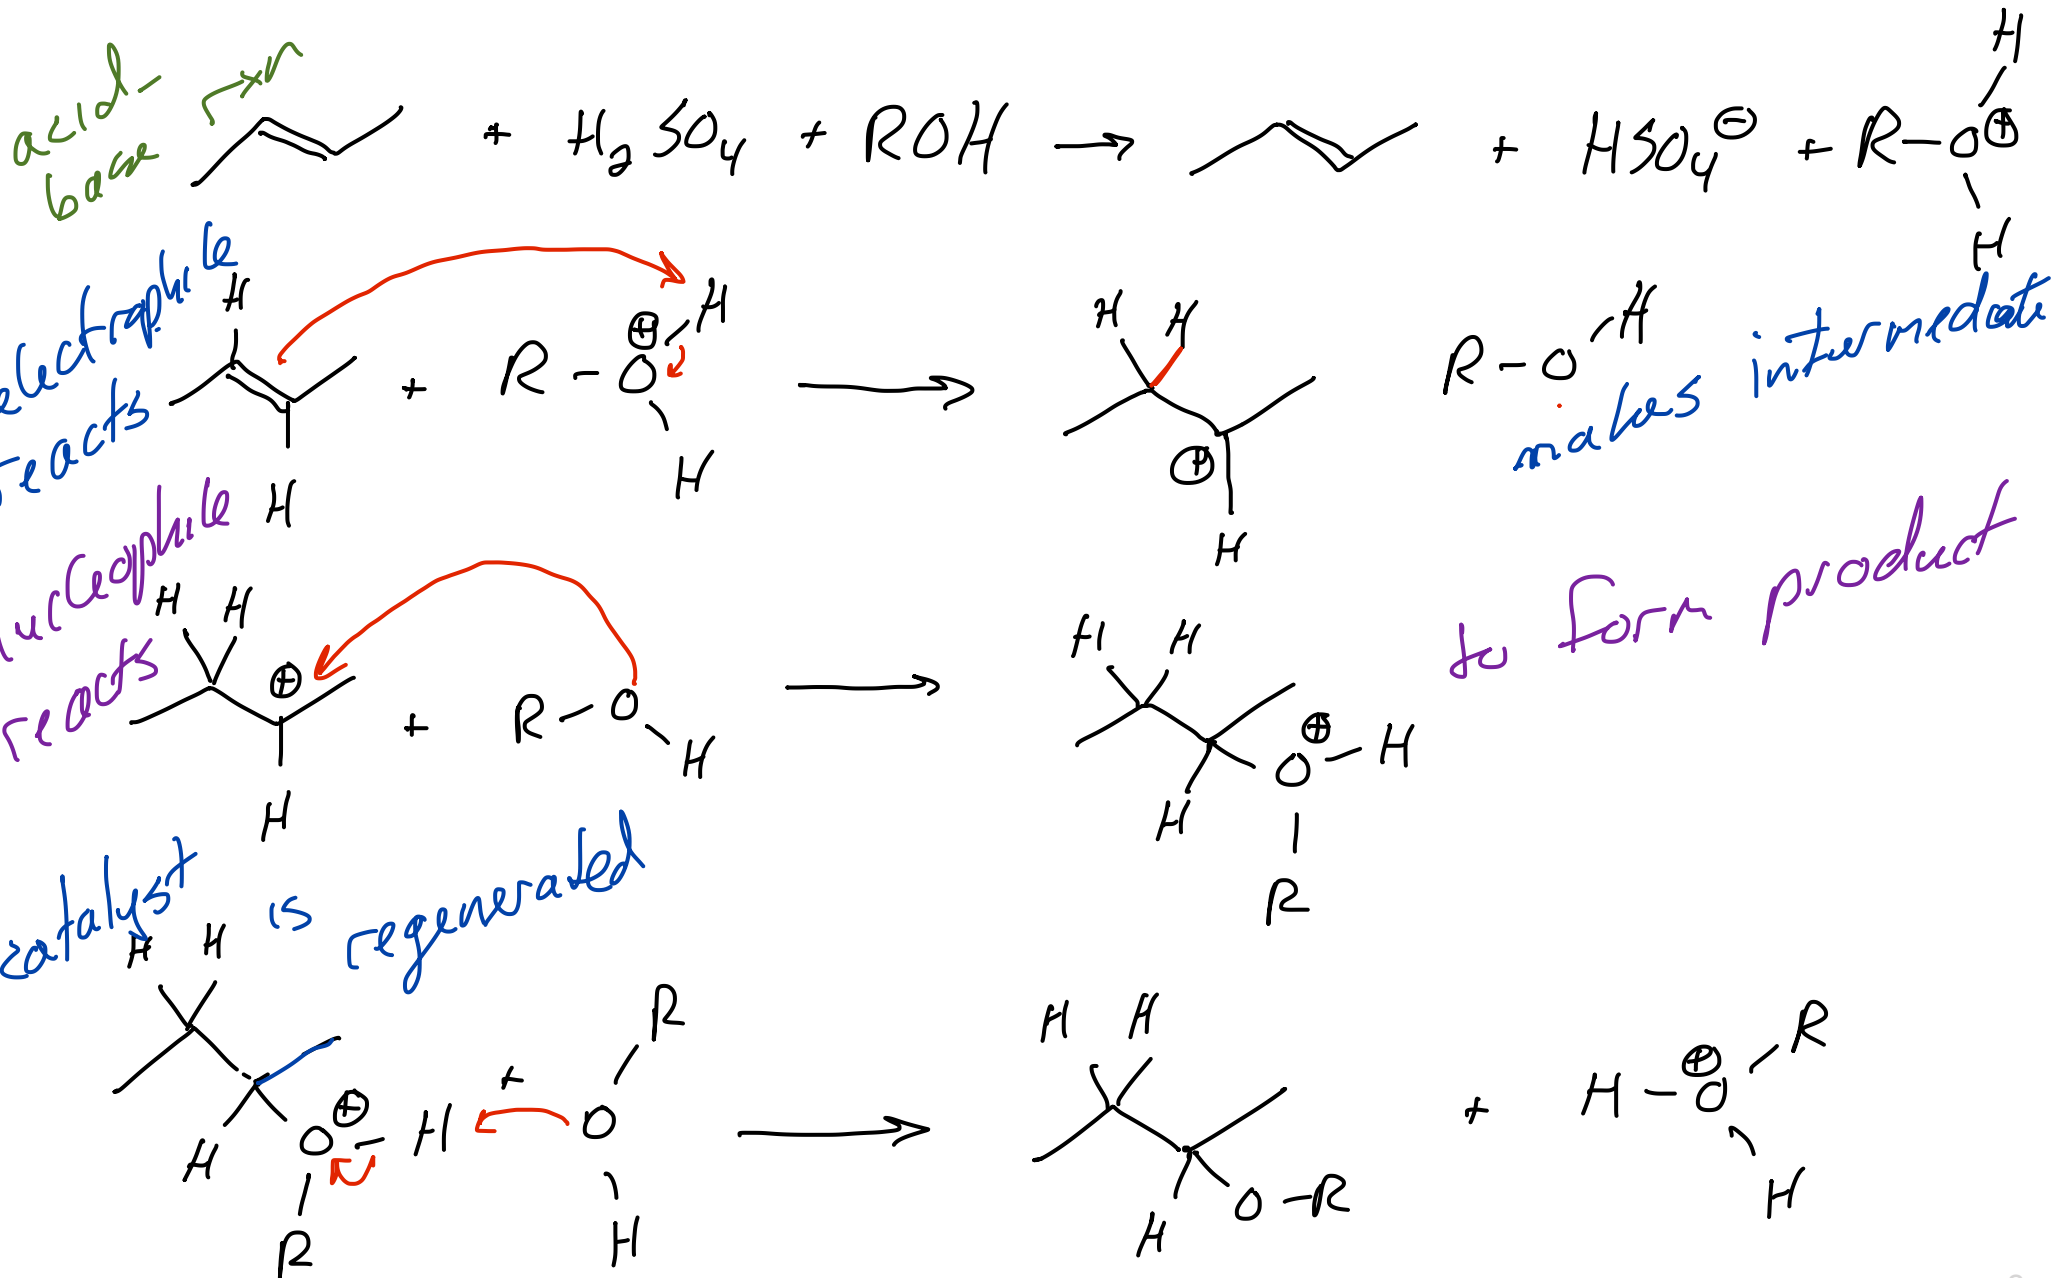 acid-
base rxn
+ H2SO4 + ROH → + HSO4⊖ + R-O⊕ H H
electrophile
reacts
H H + R-O⊕ H H → H H ⊕ H R-O H
makes intermediate
nucleophile
reacts
H H ⊕ H + R-O H → H H H O⊕-H R
to form product
catalyst is regenerated
H H H O⊕-H R + R O H → H H H O-R + H-O⊕ R H